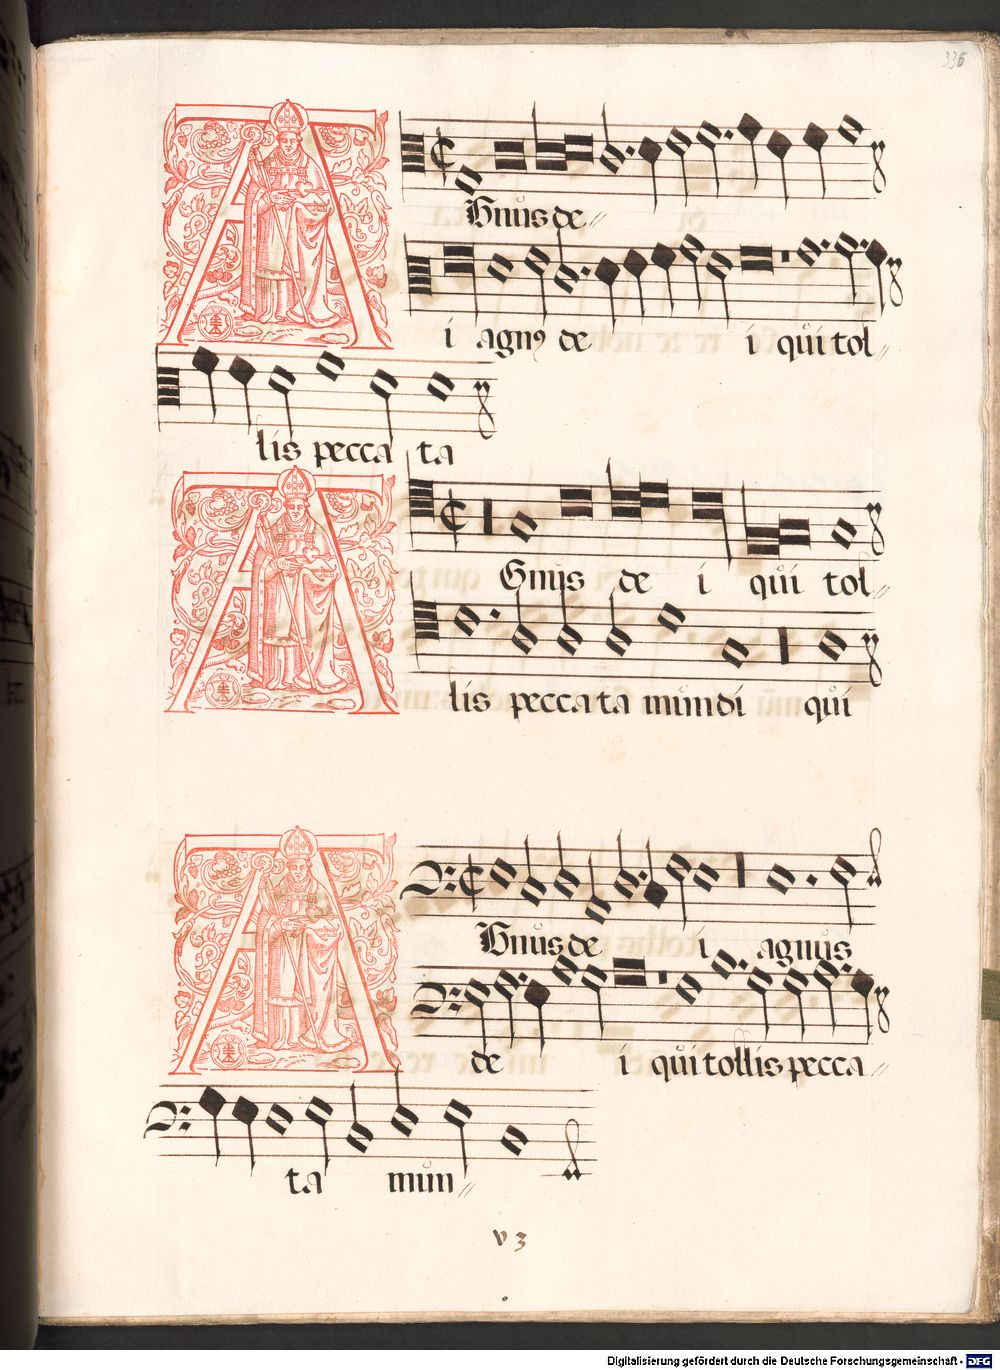 326
AGnus de
i agnꝰ de i qui tol
lis pecca ta
AGnus de i qui tol
lis peccata mundi qui
AGnus de i agnus
de i qui tollis pecca
ta mun
v 3
Digitalisierung gefördert durch die Deutsche Forschungsgemeinschaft - DFG